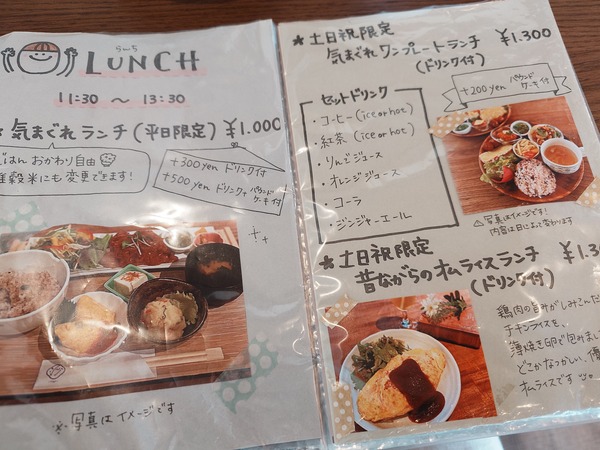 らんち
LUNCH
11:30 〜 13:30
★ 気まぐれランチ(平日限定) ¥1.000
ごはん おかわり自由
雑穀米にも変更できます!
+300yen ドリンク付
+500yen ドリンク+パウンドケーキ付
※写真はイメージです
★土日祝限定
気まぐれワンプレートランチ ¥1.300
(ドリンク付)
+200yen パウンドケーキ付
セットドリンク
・コーヒー(ice or hot)
・紅茶(ice or hot)
・りんごジュース
・オレンジジュース
・コーラ
・ジンジャーエール
⚠写真はイメージです!
内容は日によって変わります
★土日祝限定
昔ながらのオムライスランチ
(ドリンク付)
鶏肉の旨みがしみこんだ
チキンライスを、
薄焼き卵で包みま
どこかなつかしい、
オムライスです